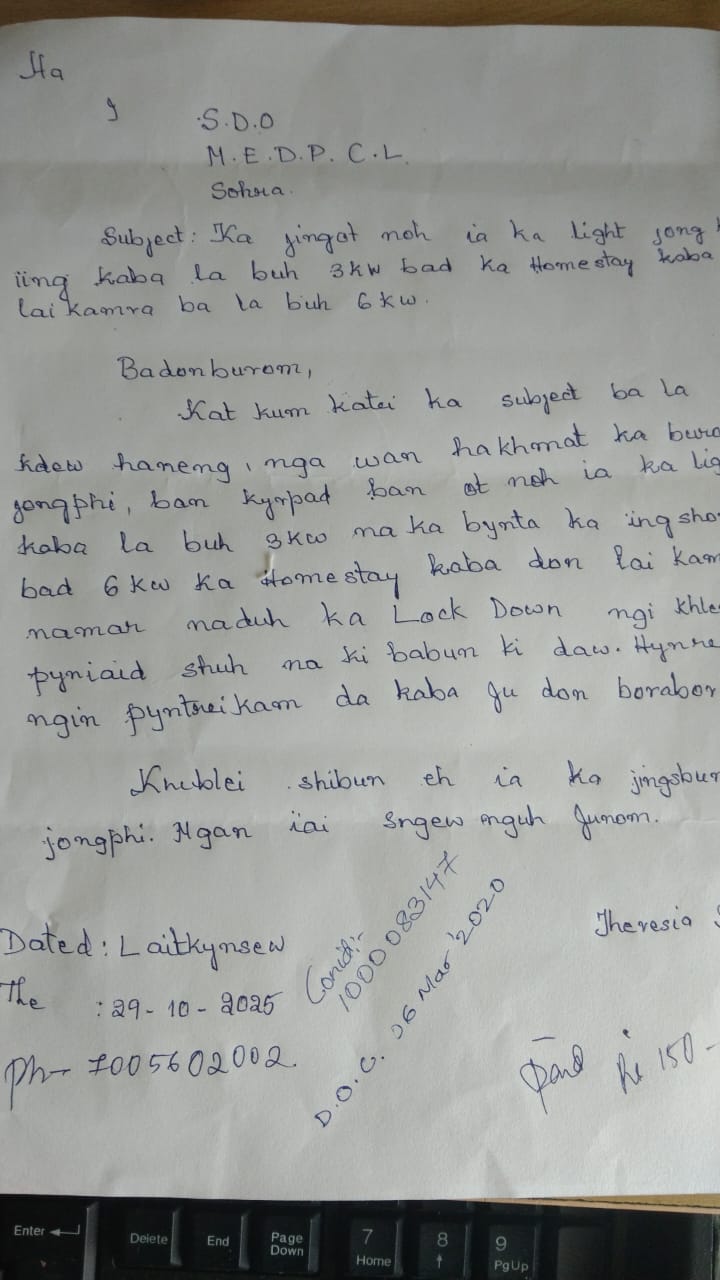 Ha
I
S.D.O
M.E.D.P.C.L.
Sohra.
Subject: Ka jingot noh ia ka light jong
iing kaba la buh 3kw bad ka Homestay kaba
lai kamra ba la buh 6 kw.
Badonburom,
Kat kum katei ka subject ba la
kdew haneng, nga wan hakhmat ka buro
jongphi, ban kyrpad ban ot noh ia ka lig
kaba la buh 3kw na ka bynta ka ing sho
bad 6 kw ka Homestay kaba don lai kam
namar naduh ka Lock Down ngi khle
pyniaid shuh na ki babun ki daw. Hynre
ngin pyntreikam da kaba ju don borabor
Khublei shibun eh ia ka jingsbur
jongphi. Ngan ïai sngewnguh junom.
Theresia
Dated: Laitkynsew
The : 29-10-2025
Ph- 7005602002.
Conid:-
1000083147
D.O.C. 06 Mar '2020
Rs 150-
Enter
Delete
End
Page Down
7 Home
8 ↑
9 PgUp